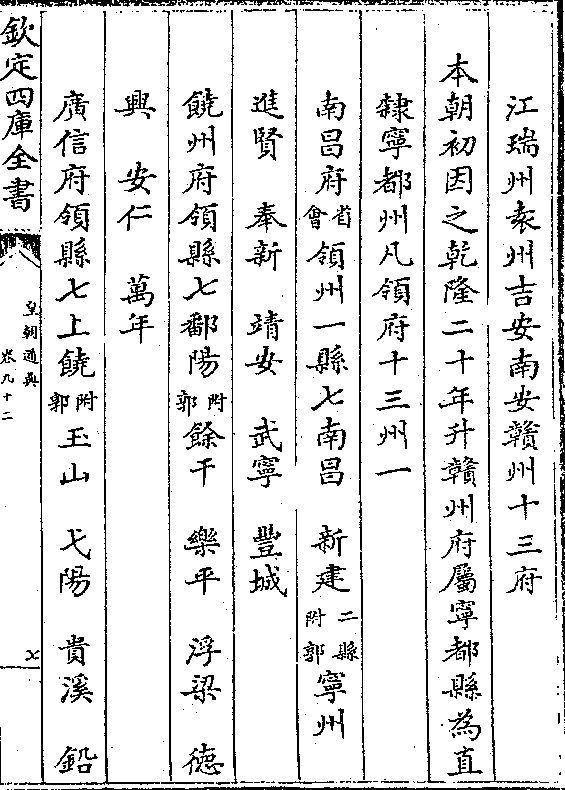 江瑞州袁州吉安南安贛州十三府
本朝初因之乾隆二十年升贛州府屬寧都縣為直
隸寧都州凡領府十三州一
南昌府省會領州一縣七南昌 新建二縣附郭寧州
進賢 奉新 靖安 武寧 豐城
饒州府領縣七鄱陽附郭餘干 樂平 浮梁 德
興 安仁 萬年
廣信府領縣七上饒附郭玉山 弋陽 貴溪 鉛
欽定四庫全書
皇朝通典
卷九十二
七